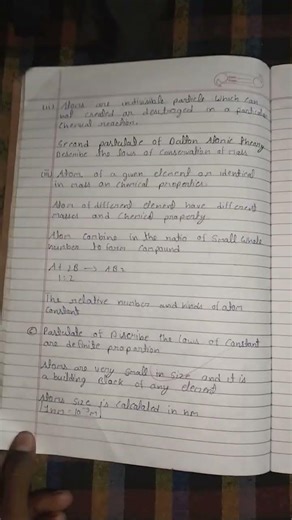 (ii) Atoms are indivisible particle which can
not created or destroyed in a particular
chemical reaction.
Second postulate of Dalton Atomic theory
Describe the laws of conservation of mass
(iii) Atom of a given element are identical
in mass an chemical properties.
Atom of different element have different
masses and chemical property
Atom combine in the ratio of Small whole
number to form compound
A+ 2B → AB2
1:2
The relative number and kinds of atom
constant
Postulate of Describe the laws of constant
are definite proportion
Atoms are very small in size and it is
a building block of any element
Atoms size is calculated in nm